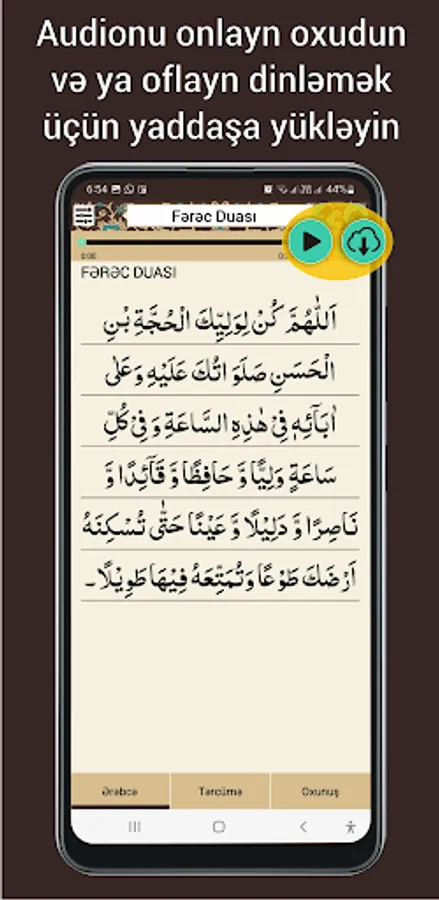 Audionu onlayn oxudun
və ya oflayn dinləmək
üçün yaddaşa yükləyin
6:54
44%
Fərəc Duası
0:00
FƏRƏC DUASI
اَللّٰهُمَّ كُنْ لِوَلِيِّكَ الْحُجَّةِ بْنِ
الْحَسَنِ صَلَوَاتُكَ عَلَيْهِ وَعَلٰى
اٰبَآئِهٖ فِيْ هٰذِهِ السَّاعَةِ وَ فِيْ كُلِّ
سَاعَةٍ وَلِيًّا وَّ حَافِظًا وَّ قَآئِدًا وَّ
نَاصِرًا وَّ دَلِيْلًا وَّ عَيْنًا حَتّٰى تُسْكِنَهُ
اَرْضَكَ طَوْعًا وَتُمَتِّعَهُ فِيْهَا طَوِيْلًا۔
Ərəbcə
Tərcümə
Oxunuş